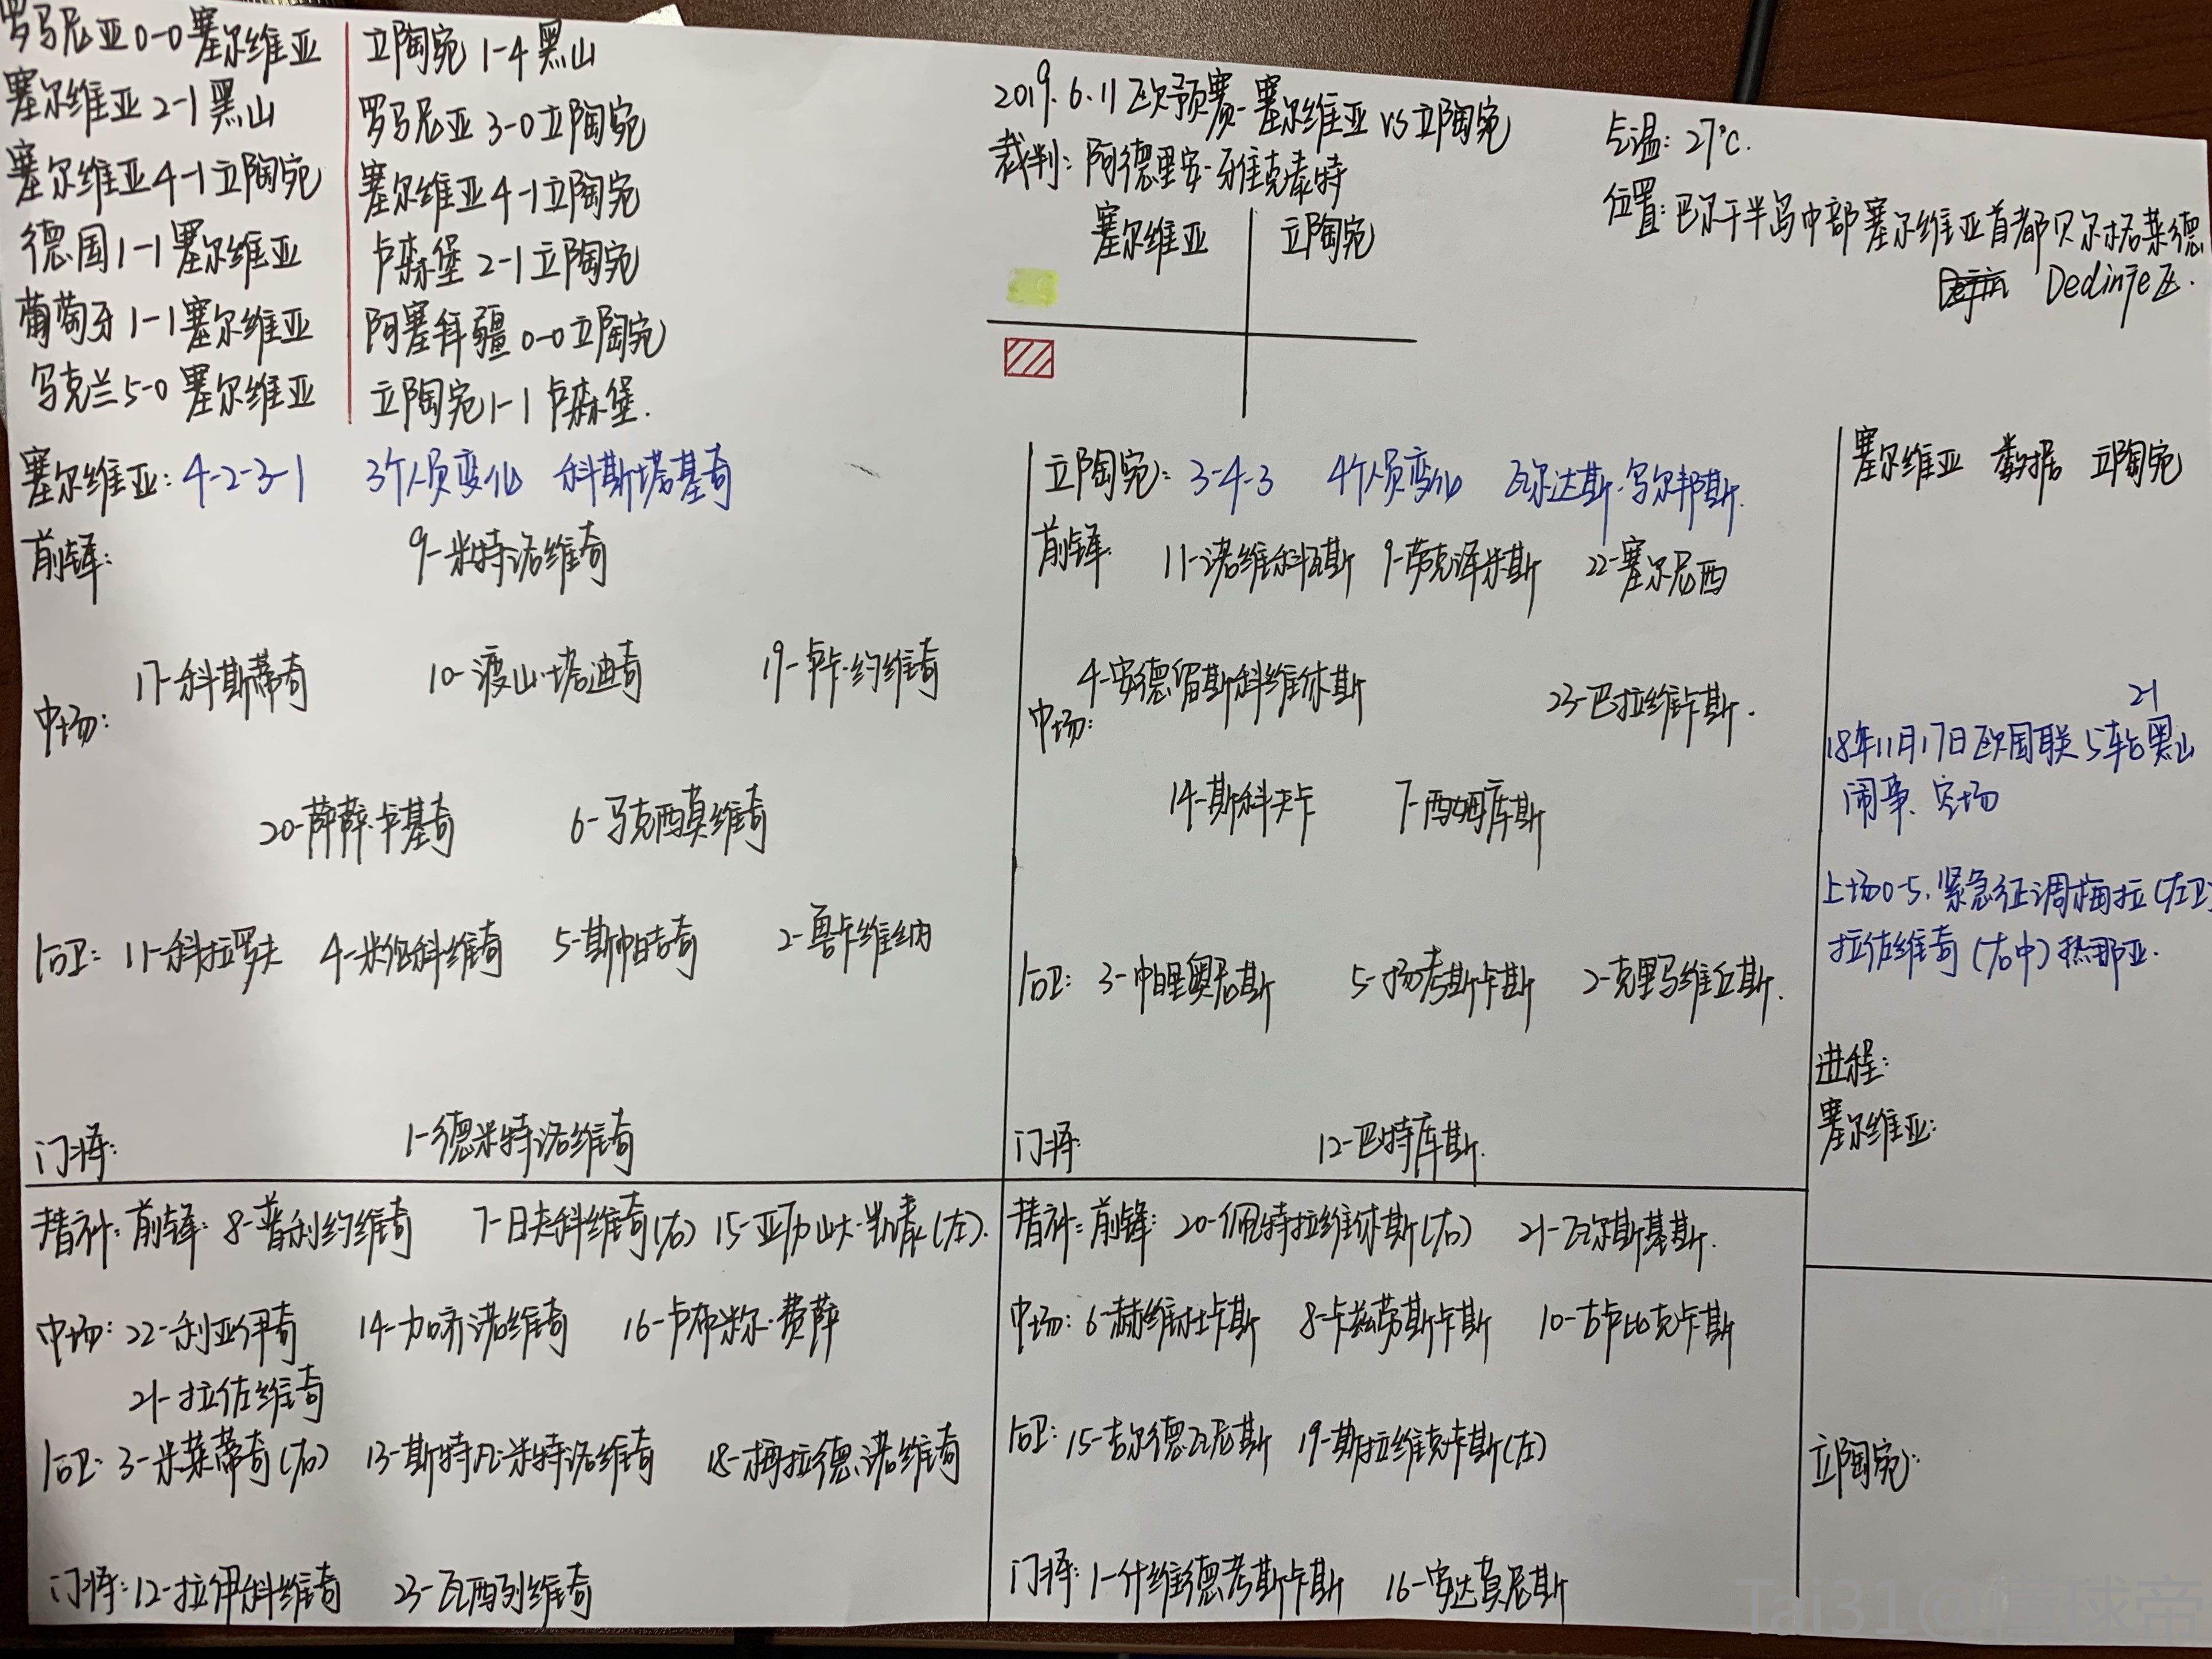 罗马尼亚0-0塞尔维亚
塞尔维亚2-1黑山
塞尔维亚4-1立陶宛
德国1-1塞尔维亚
葡萄牙1-1塞尔维亚
乌克兰5-0塞尔维亚
立陶宛1-4黑山
罗马尼亚3-0立陶宛
塞尔维亚4-1立陶宛
卢森堡2-1立陶宛
阿塞拜疆0-0立陶宛
立陶宛1-1卢森堡.
2019.6.11欧预赛-塞尔维亚vs立陶宛
裁判:阿德里安·
塞尔维亚 立陶宛
气温:27℃.
位置:巴尔干半岛中部塞尔维亚首都贝尔格莱德
Dedinje区.
塞尔维亚:4-2-3-1 3个人员变化 科斯塔基奇
前锋: 9-米特洛维奇
17-科斯蒂奇 10-渡山·塔迪奇 19-卢卡·约维奇
中场:
20-萨萨·卢基奇 6-马克西莫维奇
后卫:11-科拉罗夫 4-米伦科维奇 5-斯帕吉奇 2-鲁卡维纳
门将: 1-德米特洛维奇
替补:前锋:8-普利约维奇 7-日夫科维奇(右) 15-亚历山大·凯泰(左).
中场:22-利亚伊奇 14-加齐诺维奇 16-卢布米尔·费萨
21-拉佐维奇
后卫:3-米莱蒂奇(右) 13-斯特凡·米特洛维奇 18-梅拉德诺维奇
门将:12-拉伊科维奇 23-瓦西列维奇
立陶宛:3-4-3 4个人员变化 瓦尔达斯·乌尔邦斯.
前锋: 11-诺维科瓦斯 9-萨克泽米斯 22-塞尔尼西
4-安德留斯科维休斯 23-巴拉维卡斯.
中场:
14-斯科夫卡 7-西姆库斯
后卫:3-帕里奥尼斯 5-扬考斯卡斯 2-克里马维丘斯.
门将: 12-巴特库斯.
替补:前锋:20-佩特拉维休斯(右) 21-瓦尔斯基斯.
中场:6-赫维杜卡斯 8-卡兹劳斯卡斯 10-卡比克卡斯
后卫:15-吉尔德瓦尼斯 19-斯拉维克卡斯(左)
门将:1-什维德考斯卡斯 16-安达莫尼斯
塞尔维亚 数据 立陶宛
21
18年11月17日欧国联5轮黑山
闹事、空场
上场0-5.紧急征调梅拉(左卫)
拉佐维奇(右中)热那亚.
进程:
塞尔维亚:
立陶宛: